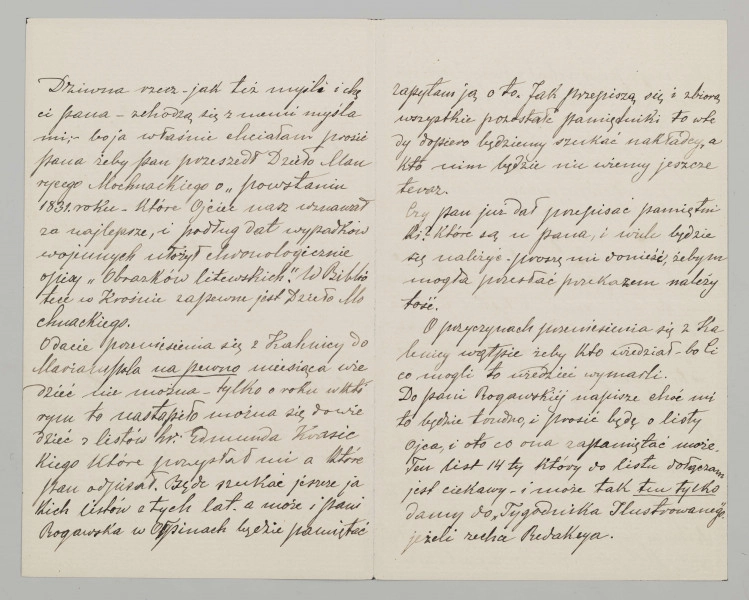 Dziwna rzecz - jak też myśli i chę
ci pana - schodzą się z memi myśla
mi; - bo ja właśnie chciałam prosić
pana żeby pan przeszedł Dzieło Mau
rycego Mochnackiego o „powstaniu
1831. roku - które Ojciec nasz uznawał
za najlepsze, i podług dat wypadków
wojennych ułożył chronologicznie
opisy „Obrazków litewskich". W Biblio
tece w Krośnie zapewne jest Dzieło Mo
chnackiego.
O dacie przeniesienia się z Kalnicy do
Mariampola na pewno miesiąca wie
dzieć nie można - tylko o roku w któ
rym to nastąpiło można się dowie
dzieć z listów hr. Edmunda Krasic
kiego które przysłał mi a które
pan odpisał. Będę szukać jeszcze ja
kich listów z tych lat. a może i pani
Rogawska w Ołpinach będzie pamiętać
zapytam ją o to. Jak przepiszą się i zbiorą
wszystkie pozostałe pamiętniki to wte
dy dopiero będziemy szukać nakładcy, a
kto nim będzie nie wiemy jeszcze
teraz.
Czy pan już dał przepisać pamiętni
ki? które są u pana, i wiele będzie
się należyć - proszę mi donieść, żebym
mogła przesłać przekazem należy
tość.
O przyczynach przeniesienia się z Ka
lnicy wątpię żeby kto wiedział - bo Ci
co mogli to wiedzieć wymarli.
Do pani Rogawskiéj napiszę choć mi
to będzie trudno, i prosić będę o listy
Ojca, i oto co ona zapamiętać może.
Ten list 14ty który do listu dołączam
jest ciekawy - i może tak ten tylko
damy do „Tygodnika Ilustrowanego".
jeżeli zechce Redakcya.